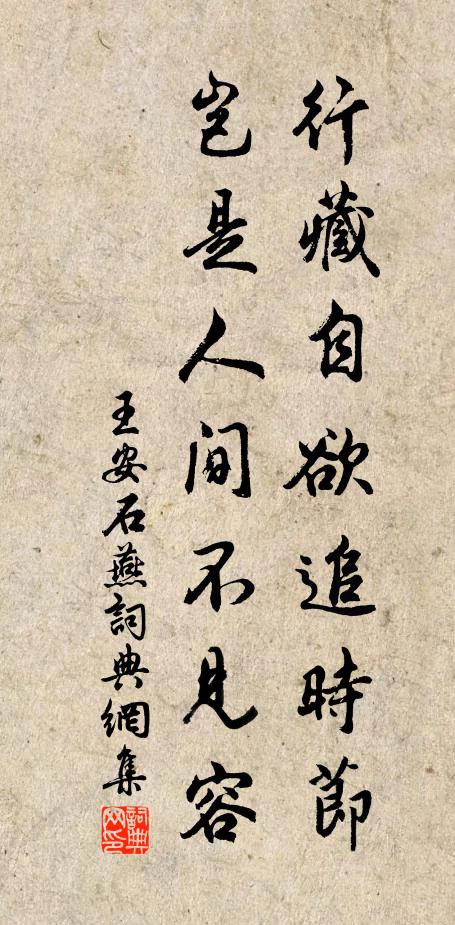 行藏自欲追時節
豈是人間不見容
王安石燕詞典網集
詞典網印